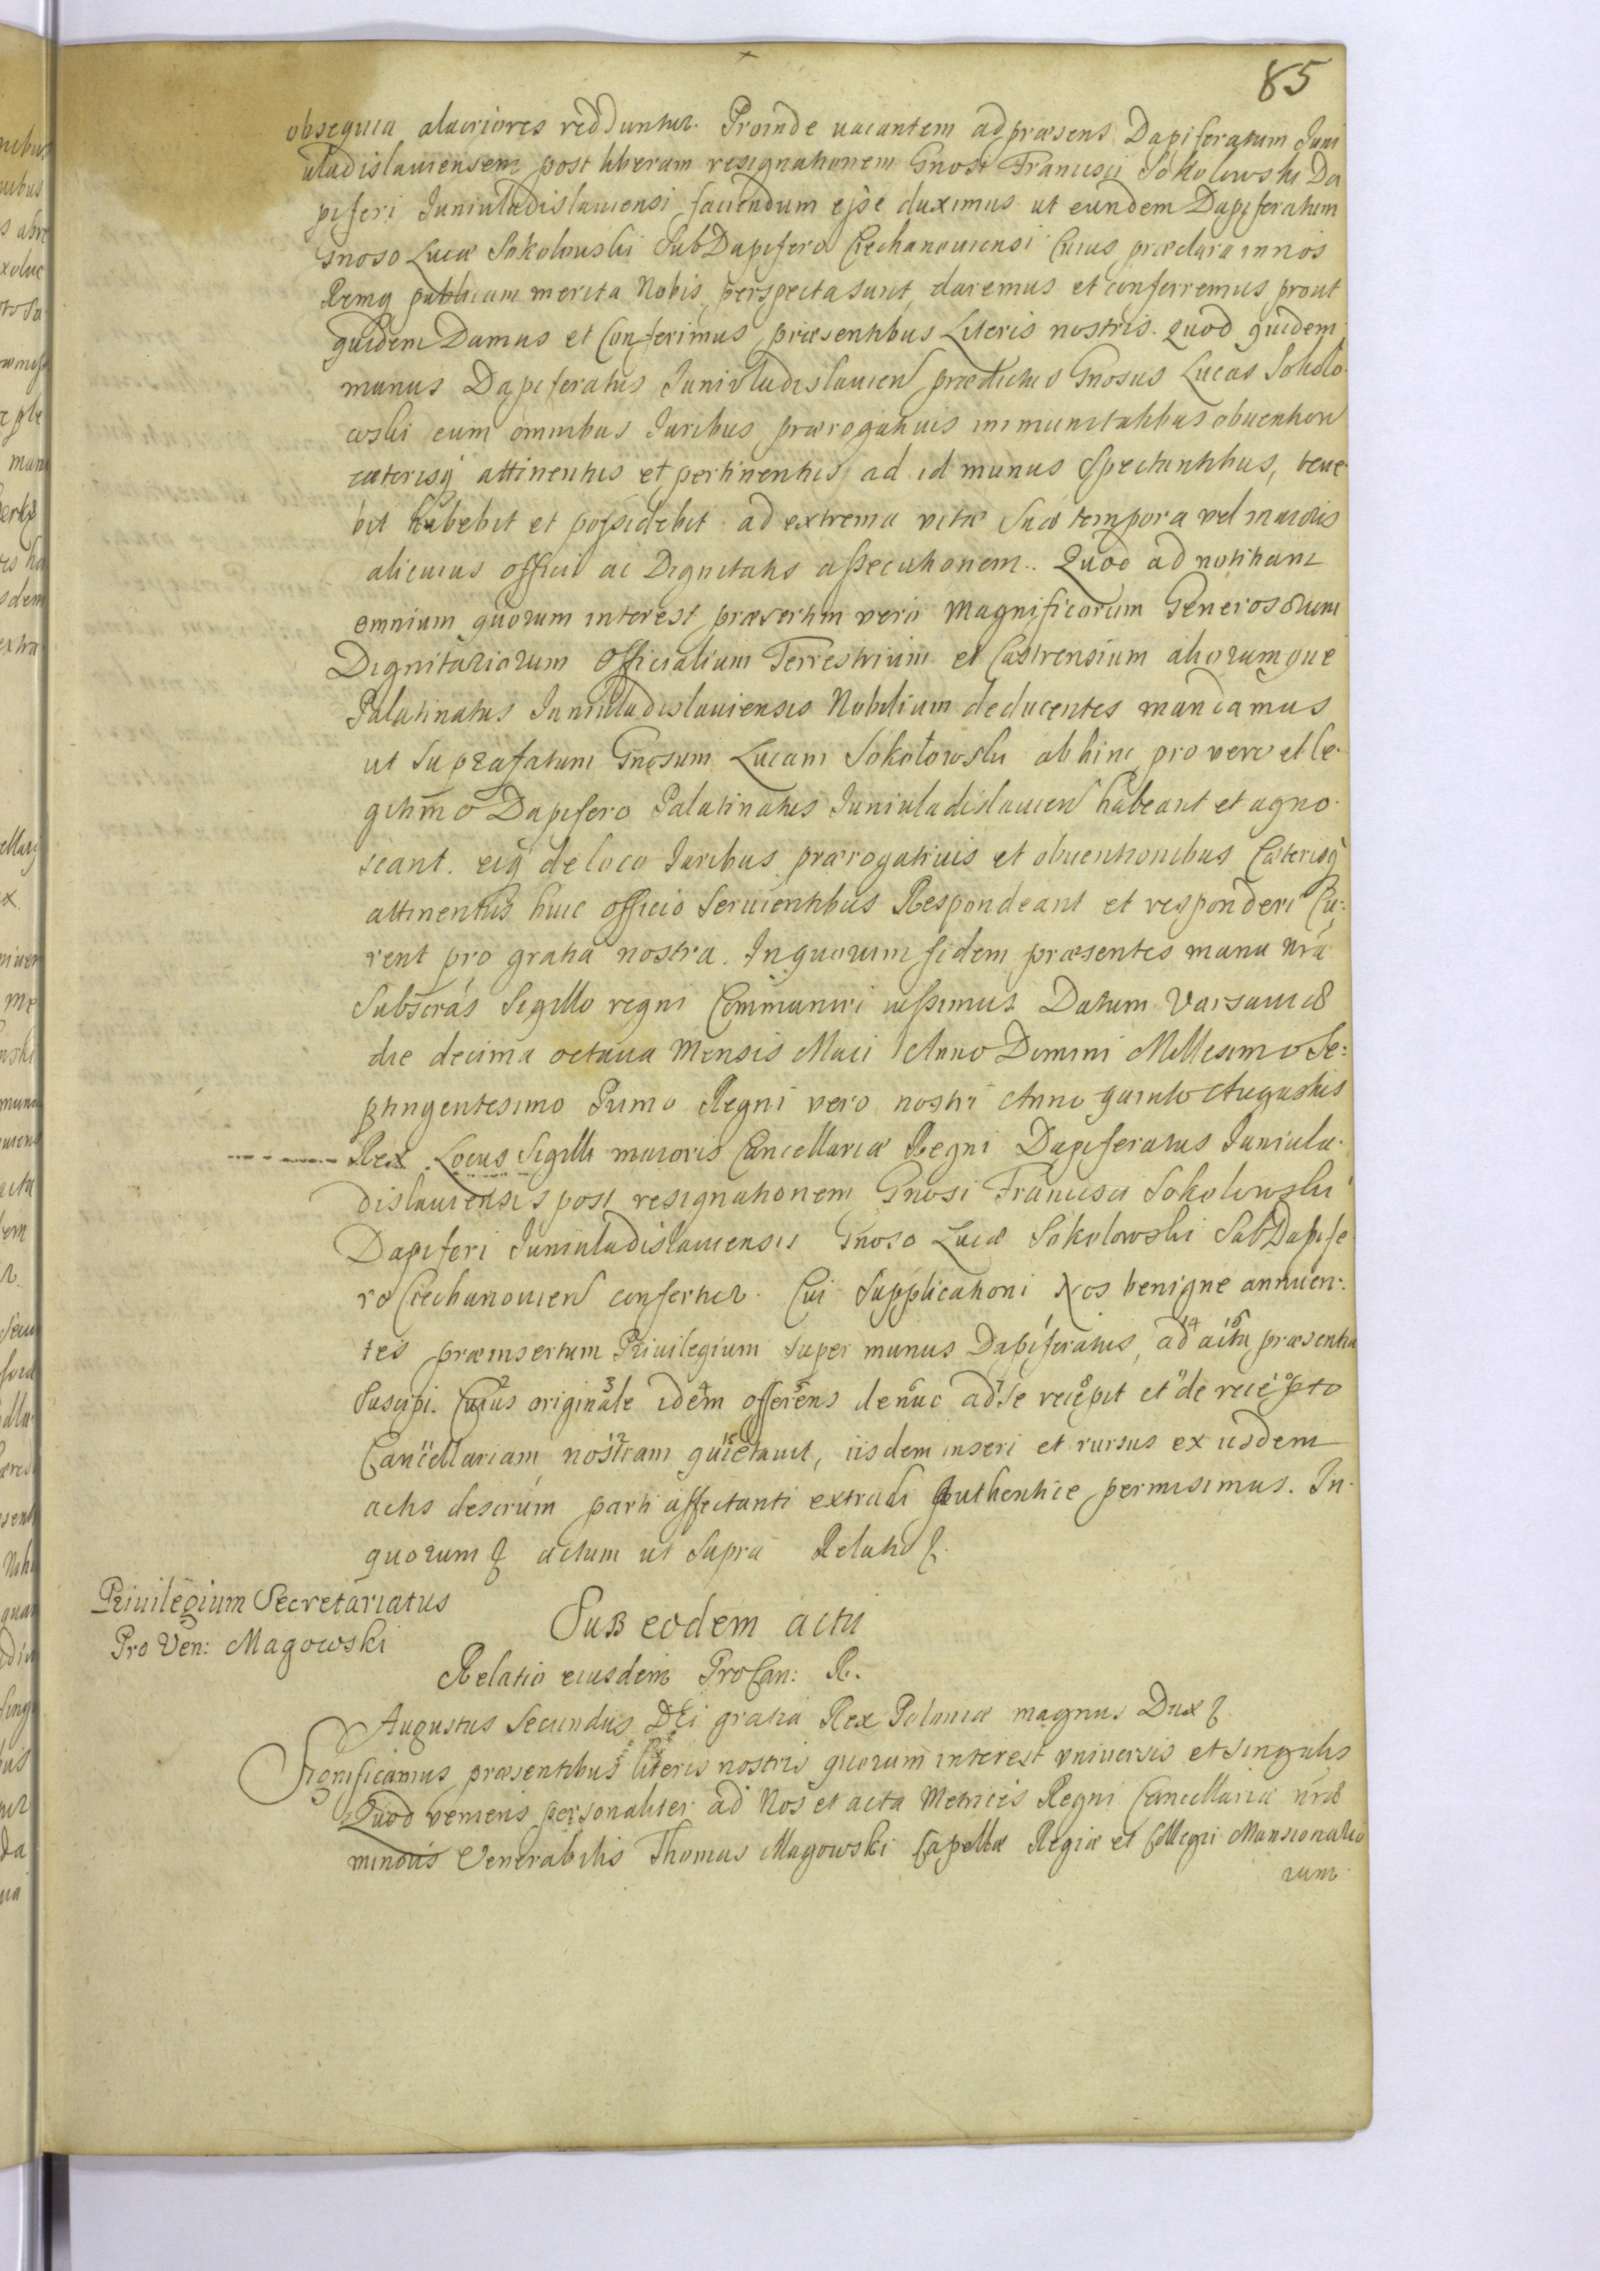 85
obsequia alacriores redduntur. Proinde vacantem ad præsens Dapiferatum Juni
vladislaviensem post liberam resignationem Gnosi Francisci Sokolowski Da
piferi Junivladislaviensi faciendum esse duximus ut eundem Dapiferatum
Gnoso Lucæ Sokolowski SubDapifero Ciechanoviensi Cuius præclara in nos
Remq publicam merita Nobis perspecta sunt daremus et conferremus prout
quidem Damus et Conferimus præsentibus Literis nostris. Quod quidem
munus Dapiferatus Junivladislavien prædictus Gnosus Lucas Sokolo
wski cum omnibus Juribus prærogativis immunitatibus obvention
cæterisq attinentiis et pertinentiis ad id munus Spectantibus, tene
bit habebit et possidebit ad extrema vitæ Suæ tempora vel maioris
alicuius officii ac Dignitatis assecutionem. Quod ad notitiam
omnium quorum interest præsertim vero Magnificorum Generosorum
Dignitariorum Officialium Terrestrium et Castrensium aliorumque
Palatinatus Junivladislaviensis Nobilium deducentes mandamus
ut Suprafatum Gnosum Lucam Sokołowski abhinc pro vero et le-
gitimo Dapifero Palatinatus Junivladislavien habeant et agno-
scant. eiq de loco Juribus prærogativis et obventionibus Cæterisq
attinentiis huic officio Servientibus Respondeant et responderi Cu:
rent pro gratia nostra. In quorum fidem præsentes manu nrá
Subscrás Sigillo regni Communiri iussimus Datum Varsaviæ
die decima octava Mensis Maii Anno Domini Millesimo Se:
ptingentesimo Primo Regni vero nostri Anno quinto Augustus
Rex Locus Sigilli maioris Cancellariæ Regni Dapiferatus Junivla-
dislaviensis post resignationem Gnosi Francisci Sokolowski
Dapiferi Junivladislaviensis Gnoso Lucæ Sokolowski SubDapife
ro Ciechanovien confertur. Cui Supplicationi Nos benigne annuen:
tes præinsertum Privilegium super munus Dapiferatus, ad acta præsentia
Suscipi. Cuius originale idem offerens denuo ad Se recepit et de recepto
Cancellariam nostram quietavit, iisdem inseri et rursus ex iisdem
actis descrúm parti affectanti extradi Authentice permisimus. In-
quorum & actum ut Supra Relatio &.
Privilegium Secretariatus
Pro Ven: Magowski
Sub eodem actu
Relatio eiusdem ProCan: R.
Augustus Secundus DEi gratia Rex Poloniæ magnus Dux &
Significamus præsentibus literis nostris quorum interest vniversis et singulis
Quod veniens personaliter ad Nos et acta Metrices Regni Cancellariæ nræ
minoris Venerabilis Thomas Magowski Capellæ Regiæ et Collegii Mansionario
rum